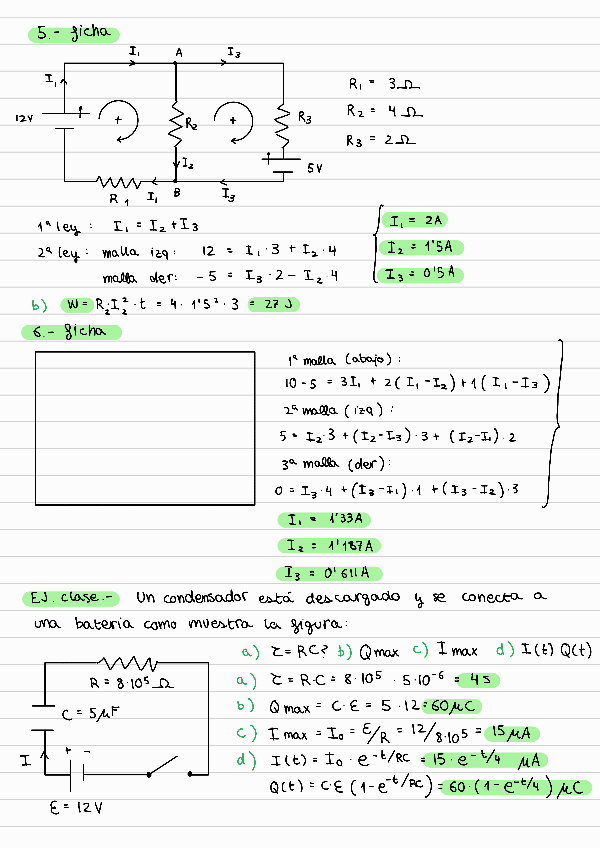 5.- ficha
I₁ A I₃
I₁
12V + + R₂ + R₃
I₂ 5V
R₁ I₁ B I₃
R₁ = 3Ω
R₂ = 4Ω
R₃ = 2Ω
1ª ley: I₁ = I₂ + I₃
2ª ley: malla izq: 12 = I₁·3 + I₂·4
malla der: -5 = I₃·2 - I₂·4
I₁ = 2A
I₂ = 1'5A
I₃ = 0'5A
b) W = R₂I₂²·t = 4·1'5²·3 = 27 J
6.- ficha
1ª malla (abajo):
10 - 5 = 3I₁ + 2(I₁-I₂) + 1(I₁-I₃)
2ª malla (izq):
5 = I₂·3 + (I₂-I₃)·3 + (I₂-I₁)·2
3ª malla (der):
0 = I₃·4 + (I₃-I₁)·1 + (I₃-I₂)·3
I₁ = 1'33A
I₂ = 1'187A
I₃ = 0'611A
EJ. clase.- Un condensador está descargado y se conecta a
una batería como muestra la figura:
a) τ = RC? b) Qmax c) I max d) I(t) Q(t)
R = 8·10⁵ Ω
C = 5μF
I + -
ε = 12V
a) τ = R·C = 8·10⁵ · 5·10⁻⁶ = 4s
b) Qmax = C·ε = 5·12 = 60μC
c) I max = I₀ = ε/R = 12/8·10⁵ = 15μA
d) I(t) = I₀ · e^-t/RC = 15·e^-t/4 μA
Q(t) = C·ε (1-e^-t/RC) = 60·(1-e^-t/4) μC